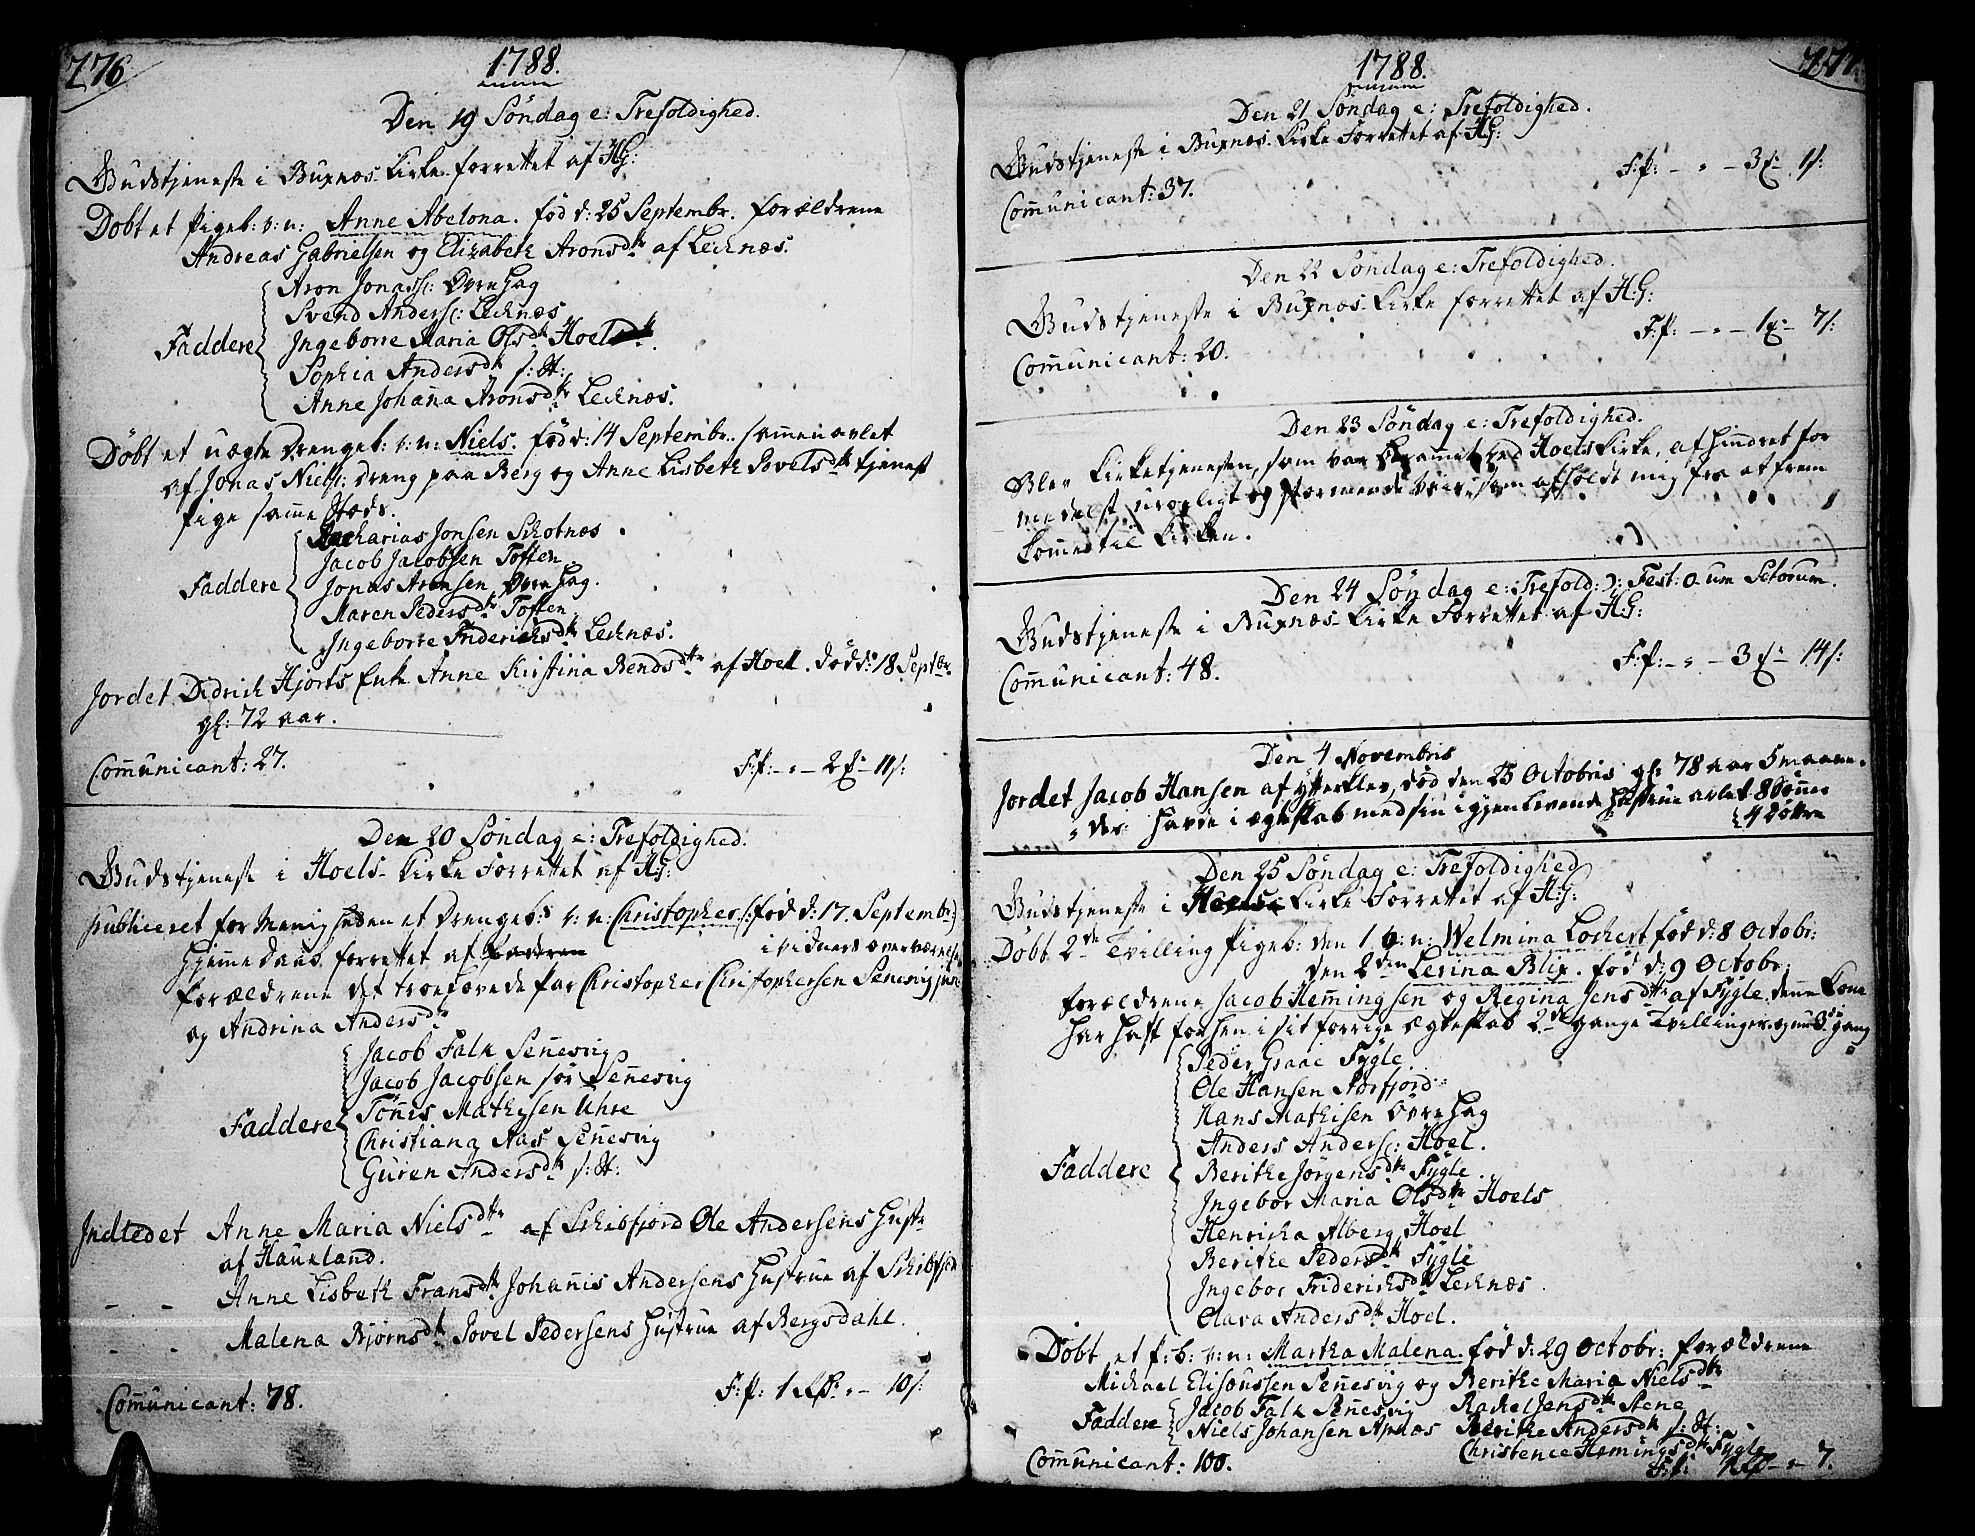 776
1788.
Den 19 Söndag e: Trefoldighed.
Gudstjeneste i Buxnæs Kirke forrettet af H:G:
Döbt et Pigeb: v: n: Anne Abelona. föd d: 25 Septembr. forældrene
Andreas Gabrielsen og Elizabeth Aronsdtr af Lecknæs.
Aron Jonass: Övre Hag
Svend Anders: Lecknæs
Faddere Ingeborre Maria Olsdtr Hoel
Sophia Andersdtr s: St:
Anne Johana Aronsdtr Lecknæs.
Döbt et uægte Drengeb: v: n: Niels. föd d: 14 Septembr. sammenavlet
af Jonas Niels: dreng paa Berg og Anne Lisbeth Povelsdtr tjenest
pige samme Steds.
Zacharias Jonsen Skotnæs
Jacob Jacobsen Toften
Faddere Jonas Aronsen Övre Hag.
Maren Pedersdtr Toften
Ingeborre Friderichsdtr Lecknæs.
Jordet Didrich Hjorts Enke Anne Kristina Bendsdtr af Hoel. död d: 18 Septbr.
gl: 72 aar.
Comunicant: 27. F:p: – " – 2 – 11 s:
Den 20 Söndag e: Trefoldighed.
Gudstjeneste i Hoels Kirke Forrettet af H:G:
publiceret for Menigheden et Drengeb: v: n: Christopher (: föd d: 17. Septembr:)
Hjemme daab forrettet af i vidners overværelse
forældrene det troelovede par Christopher Christophersen Senesvig
og Andrina Andersdtr
Jacob Falk Senesvig
Jacob Jacobsen sör Senesvig
Faddere Tönes Mathisen Uhre
Christiana Aas Senesvig
Guren Andersdtr s: St:
Indledet Anne Maria Nielsdtr af Schibfjord Ole Andersens Hustr
af Hauxland.
– – Anne Lisbeth Fransdtr Johanis Andersens Hustrue af Schibfjord
– – Malena Bjørnsdtr Povel Pedersens Hustrue af Bergsdahl.
Comunicant: 78. F:p: 1 – 10 s:
777.
1788.
Den 21 Söndag e: Trefoldighed.
Gudstjeneste i Buxnæs Kirke Forrettet af H:G:
Comunicant: 37. F:p: – " – 3 – 1 s:
Den 22 Söndag e: Trefoldighed.
Gudstjeneste i Buxnæs Kirke forrettet af H:G:
Comunicant: 20. F:p: – " – 1 – 7 s:
Den 23 Söndag e: Trefoldighed.
Blev Kirketjenesten, som var beramet ved Hoels Kirke, afhindret for
medelst uroligt og stormende veir, som afholdt mig fra at frem
komme til Kirken.
Den 24 Söndag e: Trefold: ): Fest: O um Sctorum.
Gudstjeneste i Buxnæs Kirke Forrettet af H:G:
Comunicant: 48. F:p: – " – 3 – 14 s:
Den 4 Novembris
Jordet Jacob Hansen af Ytterklev, död den 25 Octobris gl: 78 aar 5 maane
der havde i ægteskab med sin igjenlevende Hustrue avlet 8 Sönner
4 Döttre
Den 25 Söndag e: Trefoldighed
Gudstjeneste i Hoels Kirke Forrettet af H:G:
Döbt 2de Tvilling Pigeb: den 1 v: n: Welmina Lochert föd d: 8 Octobr:
den 2den Lerina Blix. föd d: 9 Octobr:
forældrene Jacob Hemingsen og Regina Jensdtr af Fygle, denne Kone
har haft forhen i sit forrige ægteskab 2de gange Tvillinger, og nu 3de gang
Peder Graae Fygle.
Ole Hansen Storfjord
Hans Mathisen Övre Hag
Anders Anders: Hoel.
Faddere Berithe Jörgensdtr Fygle
Ingebor Maria Olsdtr Hoels
Henricha Alberg Hoel
Berithe Pedersdtr Fygle
Ingebor Friderichsdtr Lecknæs.
Clara Andersdtr Hoel.
Döbt et p: b: v: n: Martha Malena. föd d: 29 Octobr: forældrene
Michael Elisæussen Senesvig og Berithe Maria Nielsdtr
Faddere Jacob Falk Senesvig Rachel Jensdtr Stene
Niels Johansen Apnæs Berithe Andersdtr s: St:
Christence Hemingsdtr Fygle
Comunicant: 100. F:p: 1 – " – 7.